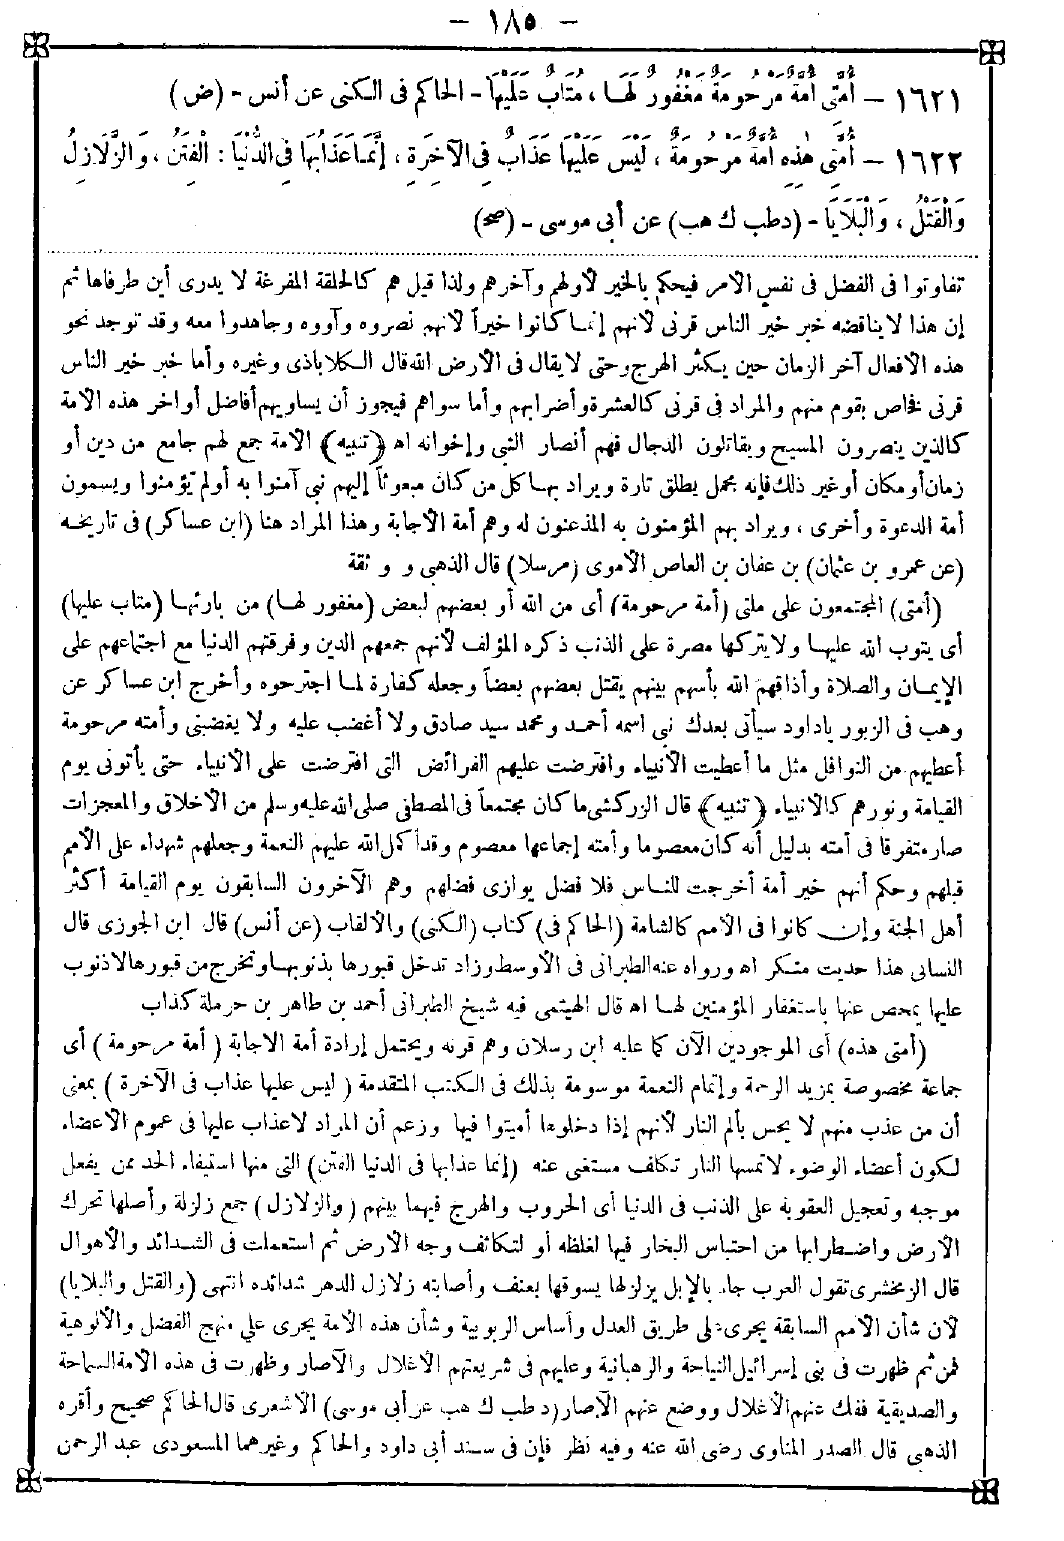 - ١٨٥ -
١٦٢١ - أُمَّتِي أُمَّةٌ مَرْحُومَةٌ مَغْفُورٌ لَهَا، مُتَابٌ عَلَيْهَا - الحاكم فى الكنى عن أنس - (ض)
١٦٢٢ - أُمَّتِي هٰذِهِ أُمَّةٌ مَرْحُومَةٌ، لَيْسَ عَلَيْهَا عَذَابٌ فِي الْآخِرَةِ، إِنَّمَا عَذَابُهَا فِي الدُّنْيَا: الْفِتَنُ، وَالزَّلَازِلُ
وَالْقَتْلُ، وَالْبَلَايَا - (د طب ك هب) عن أبى موسى - (صح)
تفاوتوا فى الفضل فى نفس الأمر فيحكم بالخير لأولهم وآخرهم ولذا قيل هم كالحلقة المفرغة لا يدرى أين طرفاها ثم
إن هذا لا يناقضه خبر خير الناس قرنى لأنهم إنما كانوا خيراً لأنهم نصروه وآووه وجاهدوا معه وقد توجد نحو
هذه الأفعال آخر الزمان حين يكثر الهرج وحتى لا يقال فى الأرض الله قال الكلاباذى وغيره وأما خبر خير الناس
قرنى فخاص بقوم منهم والمراد فى قرنى كالعشرة وأضرابهم وأما سواهم فيجوز أن يساويهم أفاضل أواخر هذه الأمة
كالذين ينصرون المسيح ويقاتلون الدجال فهم أنصار النبى وإخوانه اه (تنبيه) الأمة جمع لهم جامع من دين أو
زمان أو مكان أو غير ذلك فإنه مجمل يطلق تارة ويراد بها كل من كان مبعوثاً إليهم نبى آمنوا به أو لم يؤمنوا ويسمون
أمة الدعوة وأخرى، ويراد بهم المؤمنون به المذعنون له وهم أمة الإجابة وهذا المراد هنا (ابن عساكر) فى تاريخه
(عن عمرو بن عثمان) بن عفان بن العاص الأموى (مرسلا) قال الذهبى و و ثقة
(أمتى) المجتمعون على ملتى (أمة مرحومة) أى من الله أو بعضهم لبعض (مغفور لها) من بارئها (متاب عليها)
أى يتوب الله عليها ولا يتركها مصرة على الذنب ذكره المؤلف لأنهم جمعهم الدين وفرقتهم الدنيا مع اجتماعهم على
الإيمان والصلاة وأذاقهم الله بأسهم بينهم يقتل بعضهم بعضاً وجعله كفارة لما اجترحوه وأخرج ابن عساكر عن
وهب فى الزبور ياداود سيأتى بعدك نبى اسمه أحمد ومحمد سيد صادق ولا أغضب عليه ولا يغضبنى وأمته مرحومة
أعطيهم من النوافل مثل ما أعطيت الأنبياء وافترضت عليهم الفرائض التى افترضت على الأنبياء حتى يأتونى يوم
القيامة ونورهم كالأنبياء (تنبيه) قال الزركشى ما كان مجتمعاً فى المصطفى صلى الله عليه وسلم من الأخلاق والمعجزات
صار متفرقا فى أمته بدليل أنه كان معصوما وأمته إجماعها معصوم وقد أكمل الله عليهم النعمة وجعلهم شهداء على الأمم
قبلهم وحكم أنهم خير أمة أخرجت للناس فلا فضل يوازى فضلهم وهم الآخرون السابقون يوم القيامة أكثر
أهل الجنة وإن كانوا فى الأمم كالشامة (الحاكم فى) كتاب (الكنى) والألقاب (عن أنس) قال ابن الجوزى قال
النسائى هذا حديث منكر اه ورواه عنه الطبرانى فى الأوسط وزاد تدخل قبورها بذنوبها وتخرج من قبورها لاذنوب
عليها يمحص عنها باستغفار المؤمنين لها اه قال الهيثمى فيه شيخ الطبرانى أحمد بن طاهر بن حرملة كذاب
(أمتى هذه) أى الموجودين الآن كما عليه ابن رسلان وهم قرنه ويحتمل إرادة أمة الاجابة (أمة مرحومة) أى
جماعة مخصوصة بمزيد الرحمة وإتمام النعمة موسومة بذلك فى الكتب المتقدمة (ليس عليها عذاب فى الآخرة) بمعنى
أن من عذب منهم لا يحس بألم النار لأنهم إذا دخلوها أميتوا فيها وزعم أن المراد لا عذاب عليها فى عموم الأعضاء
لكون أعضاء الوضوء لا تمسها النار تكلف مستغنى عنه (إنما عذابها فى الدنيا الفتن) التى منها استيفاء الحد ممن يفعل
موجبه وتعجيل العقوبة على الذنب فى الدنيا أى الحروب والهرج فيهما بينهم (والزلازل) جمع زلزلة وأصلها تحرك
الأرض واضطرابها من احتباس البخار فيها لغلظه أو لتكاثف وجه الأرض ثم استعملت فى الشدائد والأهوال
قال الزمخشرى تقول العرب جاء بالإبل يزلزلها يسوقها بعنف وأصابته زلازل الدهر شدائده انتهى (والقتل والبلايا)
لأن شأن الأمم السابقة يجرى على طريق العدل وأساس الربوبية وشأن هذه الأمة يجرى على منهج الفضل والألوهية
فمن ثم ظهرت فى بنى إسرائيل النياحة والرهبانية وعليهم فى شريعتهم الأغلال والآصار وظهرت فى هذه الأمة السماحة
والصديقية ففك عنهم الأغلال ووضع عنهم الآصار (د طب ك هب عن أبى موسى) الأشعرى قال الحاكم صحيح وأقره
الذهبى قال الصدر المناوى رضى الله عنه وفيه نظر فإن فى سند أبى داود والحاكم وغيرهما المسعودى عبد الرحمن